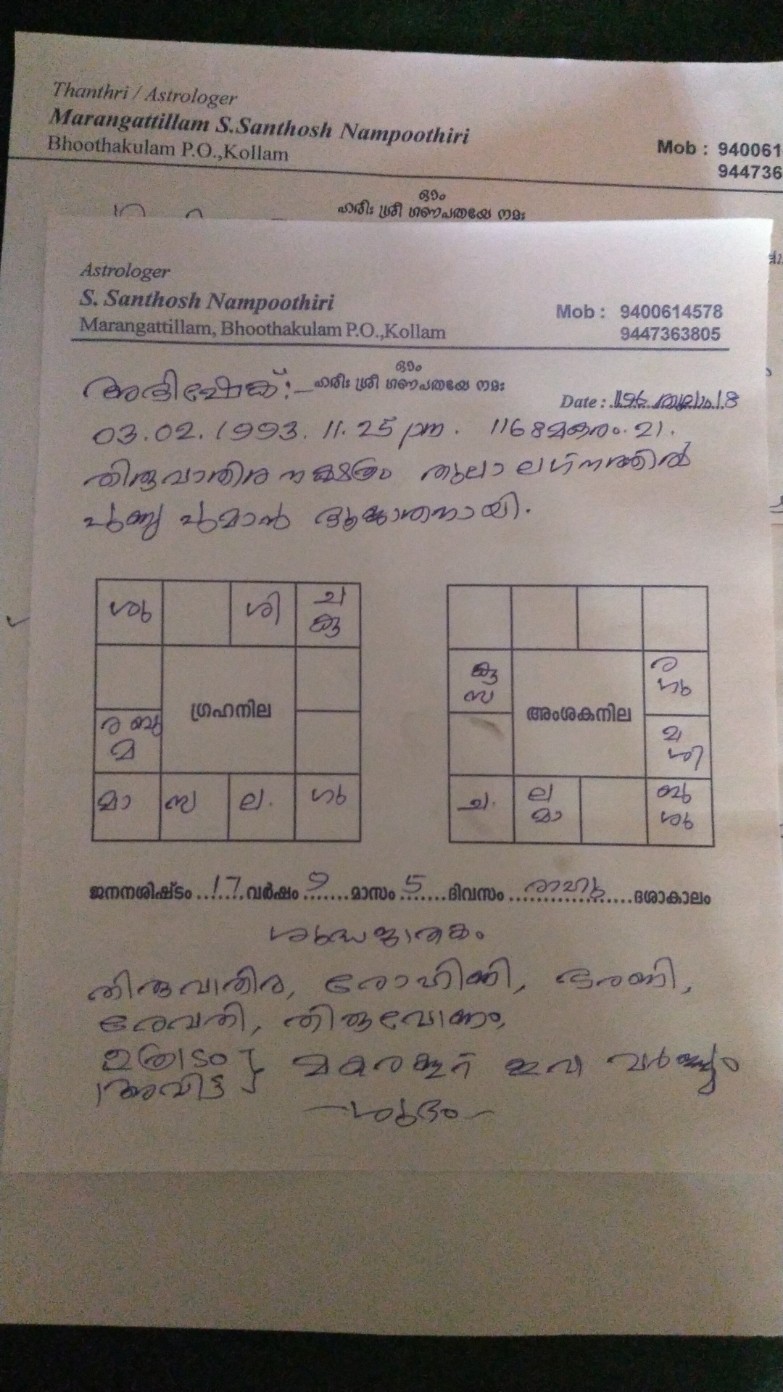 Thanthri / Astrologer
Marangattillam S.Santhosh Nampoothiri
Bhoothakulam P.O.,Kollam
Mob : 940061
944736
ഓം
ഹരിഃ ശ്രീ ഗണപതയേ നമഃ
Astrologer
S. Santhosh Nampoothiri
Marangattillam, Bhoothakulam P.O.,Kollam
Mob : 9400614578
9447363805
ഓം
ഹരിഃ ശ്രീ ഗണപതയേ നമഃ
Date :
03.02.1993. 11.25 pm. 1168 മകരം. 21.
തിരുവാതിര നക്ഷത്രം തുലാ ലഗ്നത്തിൽ
പുമാൻ
ശു ശി ച
കു
ര ബു
മ
ഗ്രഹനില
മാ സ ല. ഗു
കു
സ
ര
ഗു
അംശകനില
ശി
ച. ല
മാ
ബു
ശു
ജനനശിഷ്ടം 17 വർഷം 9 മാസം 5 ദിവസം രാഹു ദശാകാലം
ശുദ്ധജാതകം
തിരുവാതിര, രോഹിണി, ഭരണി,
രേവതി, തിരുവോണം,
ഉത്രാടം
അവിട്ടം
മകരക്കൂറ് ഇവ
ശുഭം